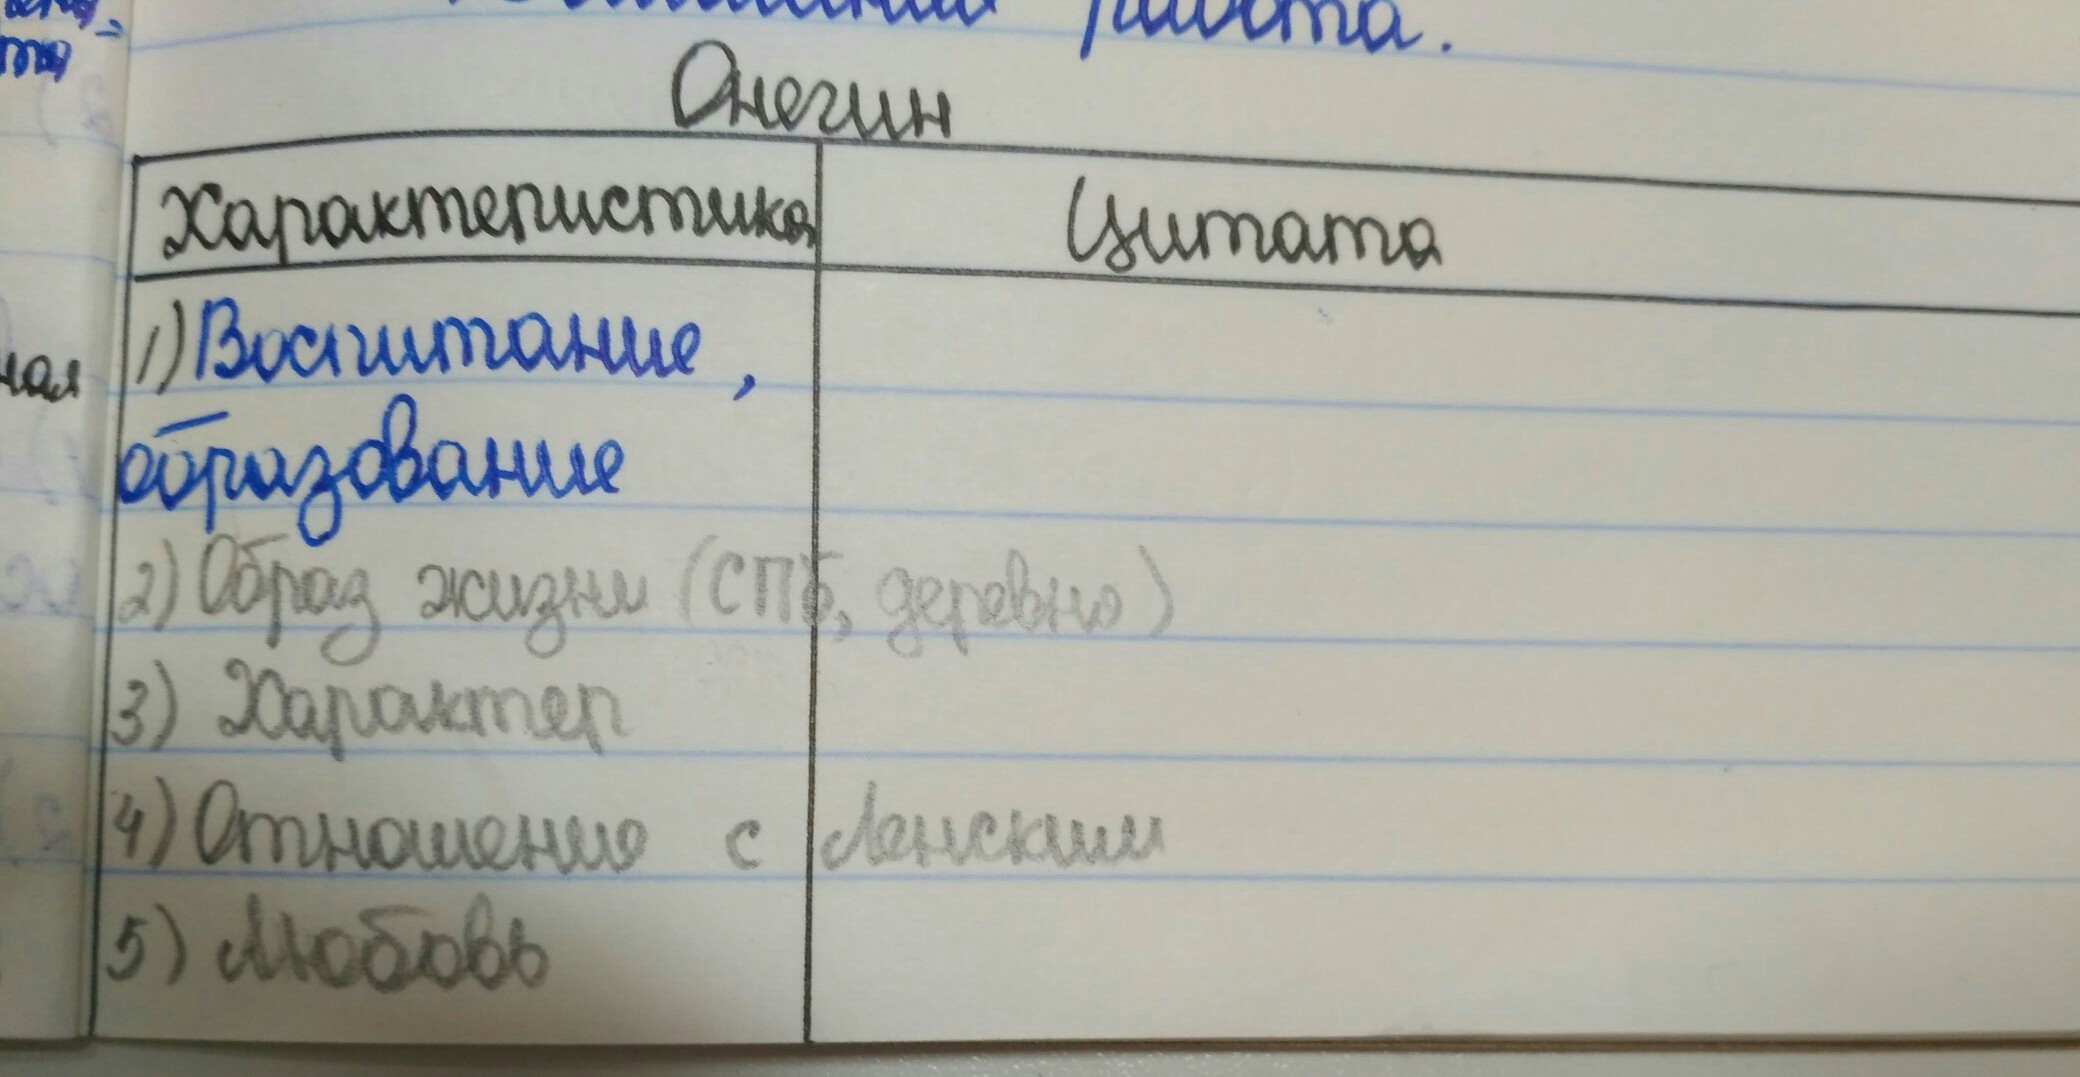 работа.
Онегин
Характеристика Цитата
1) Воспитание,
образование
2) Образ жизни (СПб, деревню)
3) Характер
4) Отношению с Ленским
5) Любовь